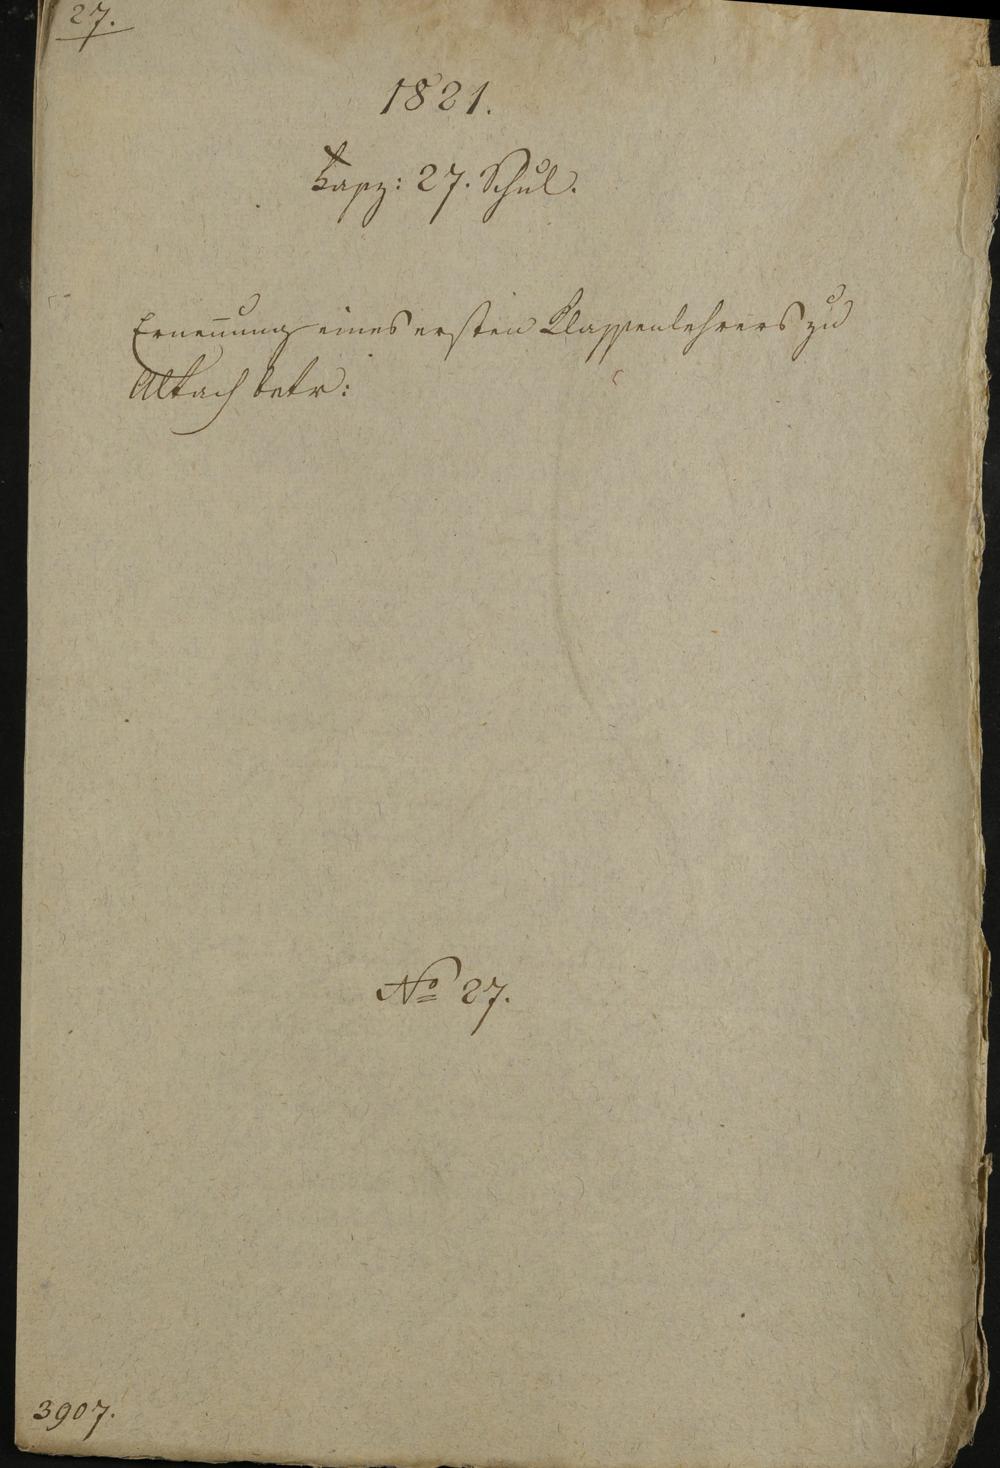 27.
1821.
Kapz: 27. Schul.
Ernenung eines ersten Klassenlehrers zu
Altach betr:
No 27.
3907.